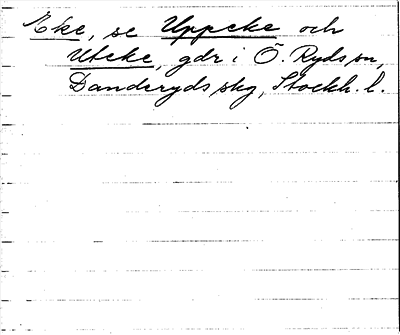 Eke, se Uppeke och
Uteke, gdr i Ö. Ryds sn,
Danderyds skg, Stockh. l.